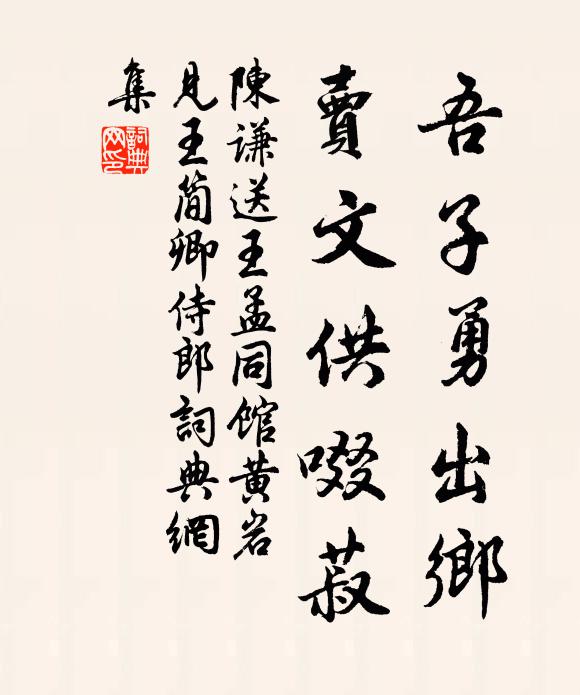 吾子勇出鄉
賣文供啜菽
陳謙送王孟同館黃岩
見王簡卿侍郎詞典網
集
詞典網印